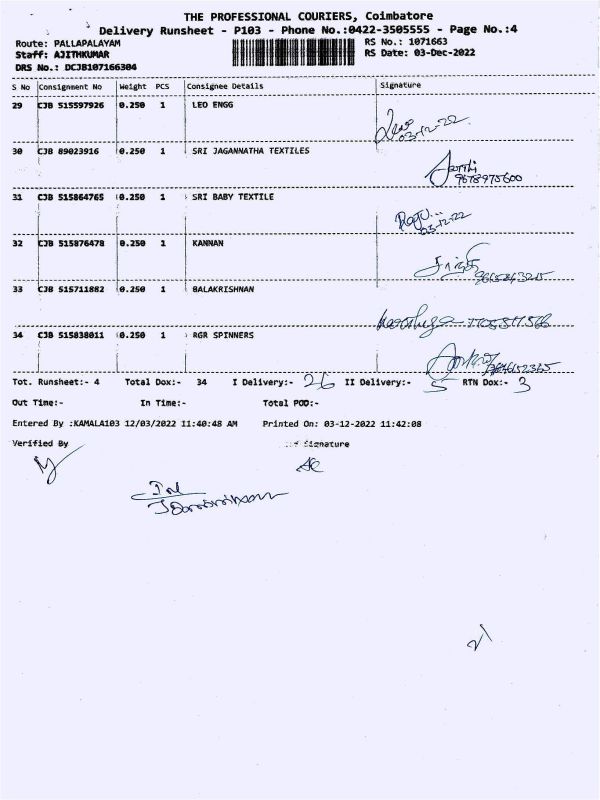 THE PROFESSIONAL COURIERS, Coimbatore
Delivery Runsheet - P103 - Phone No.:0422-3505555 - Page No.:4
Route: PALLAPALAYAM RS No.: 1071663
Staff: AJITHKUMAR RS Date: 03-Dec-2022
DRS No.: DCJB107166304
S No Consignment No Weight PCS Consignee Details Signature
29 CJB 515597926 0.250 1 LEO ENGG
03-12-22
30 CJB 89023916 0.250 1 SRI JAGANNATHA TEXTILES
9678975600
31 CJB 515864765 0.250 1 SRI BABY TEXTILE
Raju...
03-12-22
32 CJB 515876478 0.250 1 KANNAN
33 CJB 515711882 0.250 1 BALAKRISHNAN
34 CJB 515838011 0.250 1 RGR SPINNERS
Tot. Runsheet:- 4 Total Dox:- 34 I Delivery:- 26 II Delivery:- 5 RTN Dox:- 3
Out Time:- In Time:- Total POD:-
Entered By :KAMALA103 12/03/2022 11:40:48 AM Printed On: 03-12-2022 11:42:08
Verified By Signature